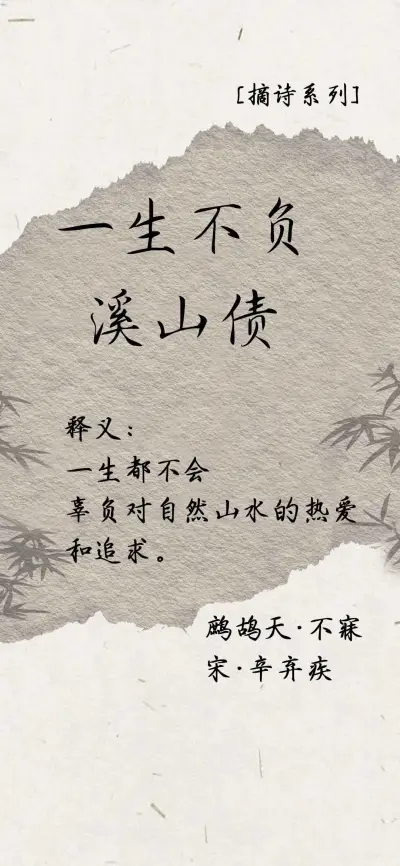 [摘诗系列]
一生不负
溪山债
释义：
一生都不会
辜负对自然山水的热爱
和追求。
鹧鸪天·不寐
宋·辛弃疾